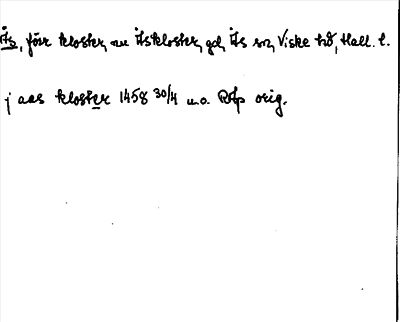 Ås, förr kloster, nu Åskloster, gd, Ås sn, Viske hd, Hall. l.
j aas kloster 1458 30/4 u.o. RAp orig.